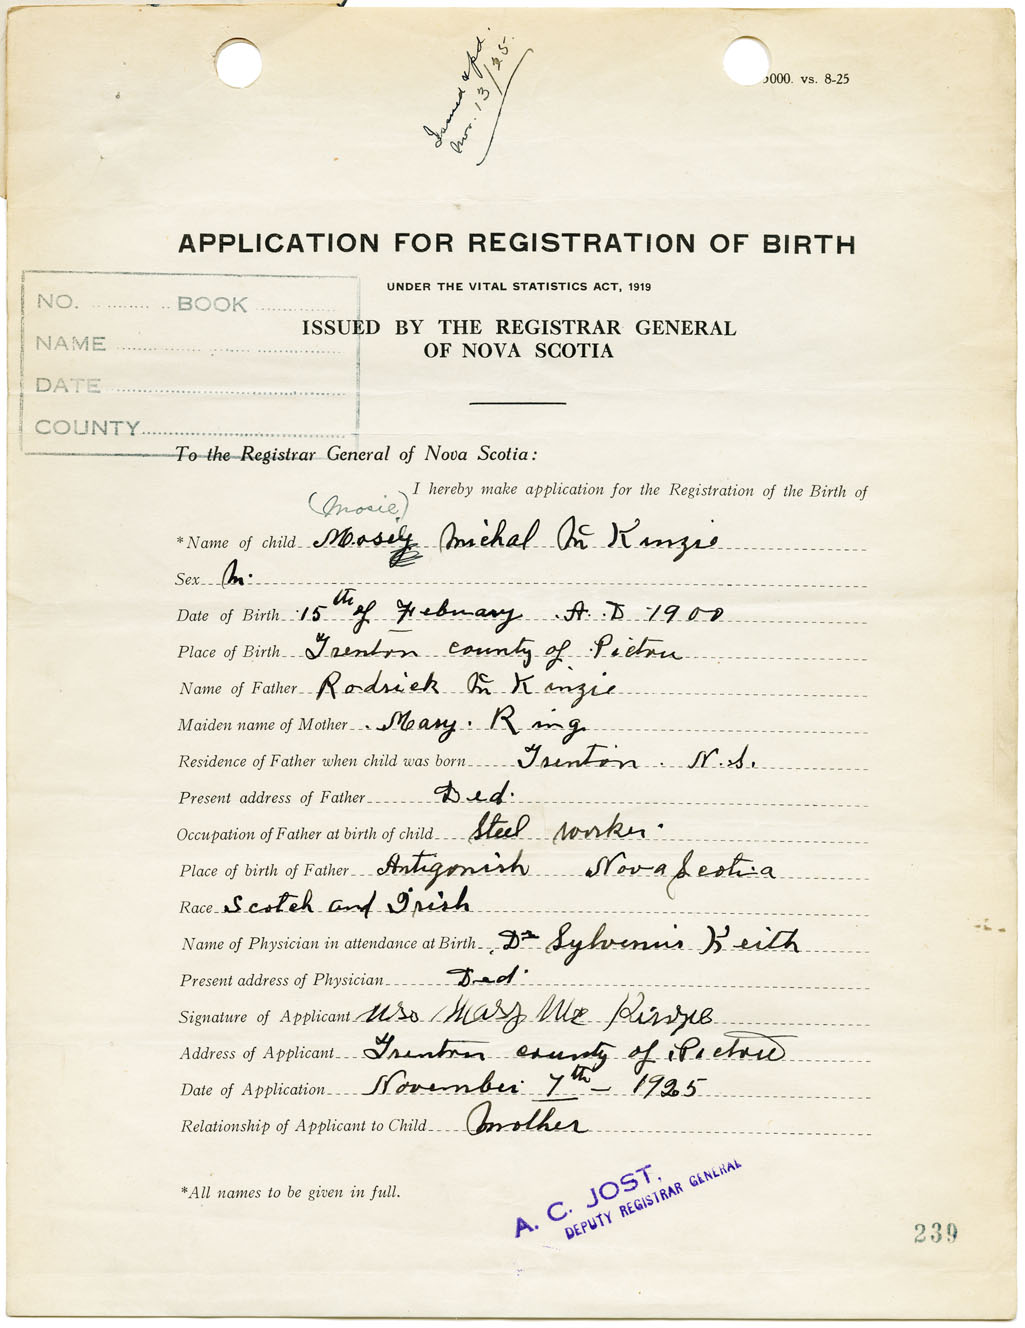 Issued & pd.
Nov. 13/25.
000. vs. 8-25
APPLICATION FOR REGISTRATION OF BIRTH
UNDER THE VITAL STATISTICS ACT, 1919
ISSUED BY THE REGISTRAR GENERAL
OF NOVA SCOTIA
NO. BOOK
NAME
DATE
COUNTY
To the Registrar General of Nova Scotia:
I hereby make application for the Registration of the Birth of
(Mosie)
*Name of child Michal Mc Kinzie
Sex M.
Date of Birth 15th of February A. D 1900
Place of Birth Trenton county of Pictou
Name of Father Rodrick Mc Kinzie
Maiden name of Mother Mary. Ring
Residence of Father when child was born Trenton. N.S.
Present address of Father Ded.
Occupation of Father at birth of child Steel worker.
Place of birth of Father Antigonish Nova Scotia
Race Scotch and Irish
Name of Physician in attendance at Birth Dr Keith
Present address of Physician Ded.
Signature of Applicant Mrs Mary Mc Kinzie
Address of Applicant Trenton county of Pictou
Date of Application November 7th - 1925
Relationship of Applicant to Child Mother
*All names to be given in full.
A. C. JOST,
DEPUTY REGISTRAR GENERAL
239